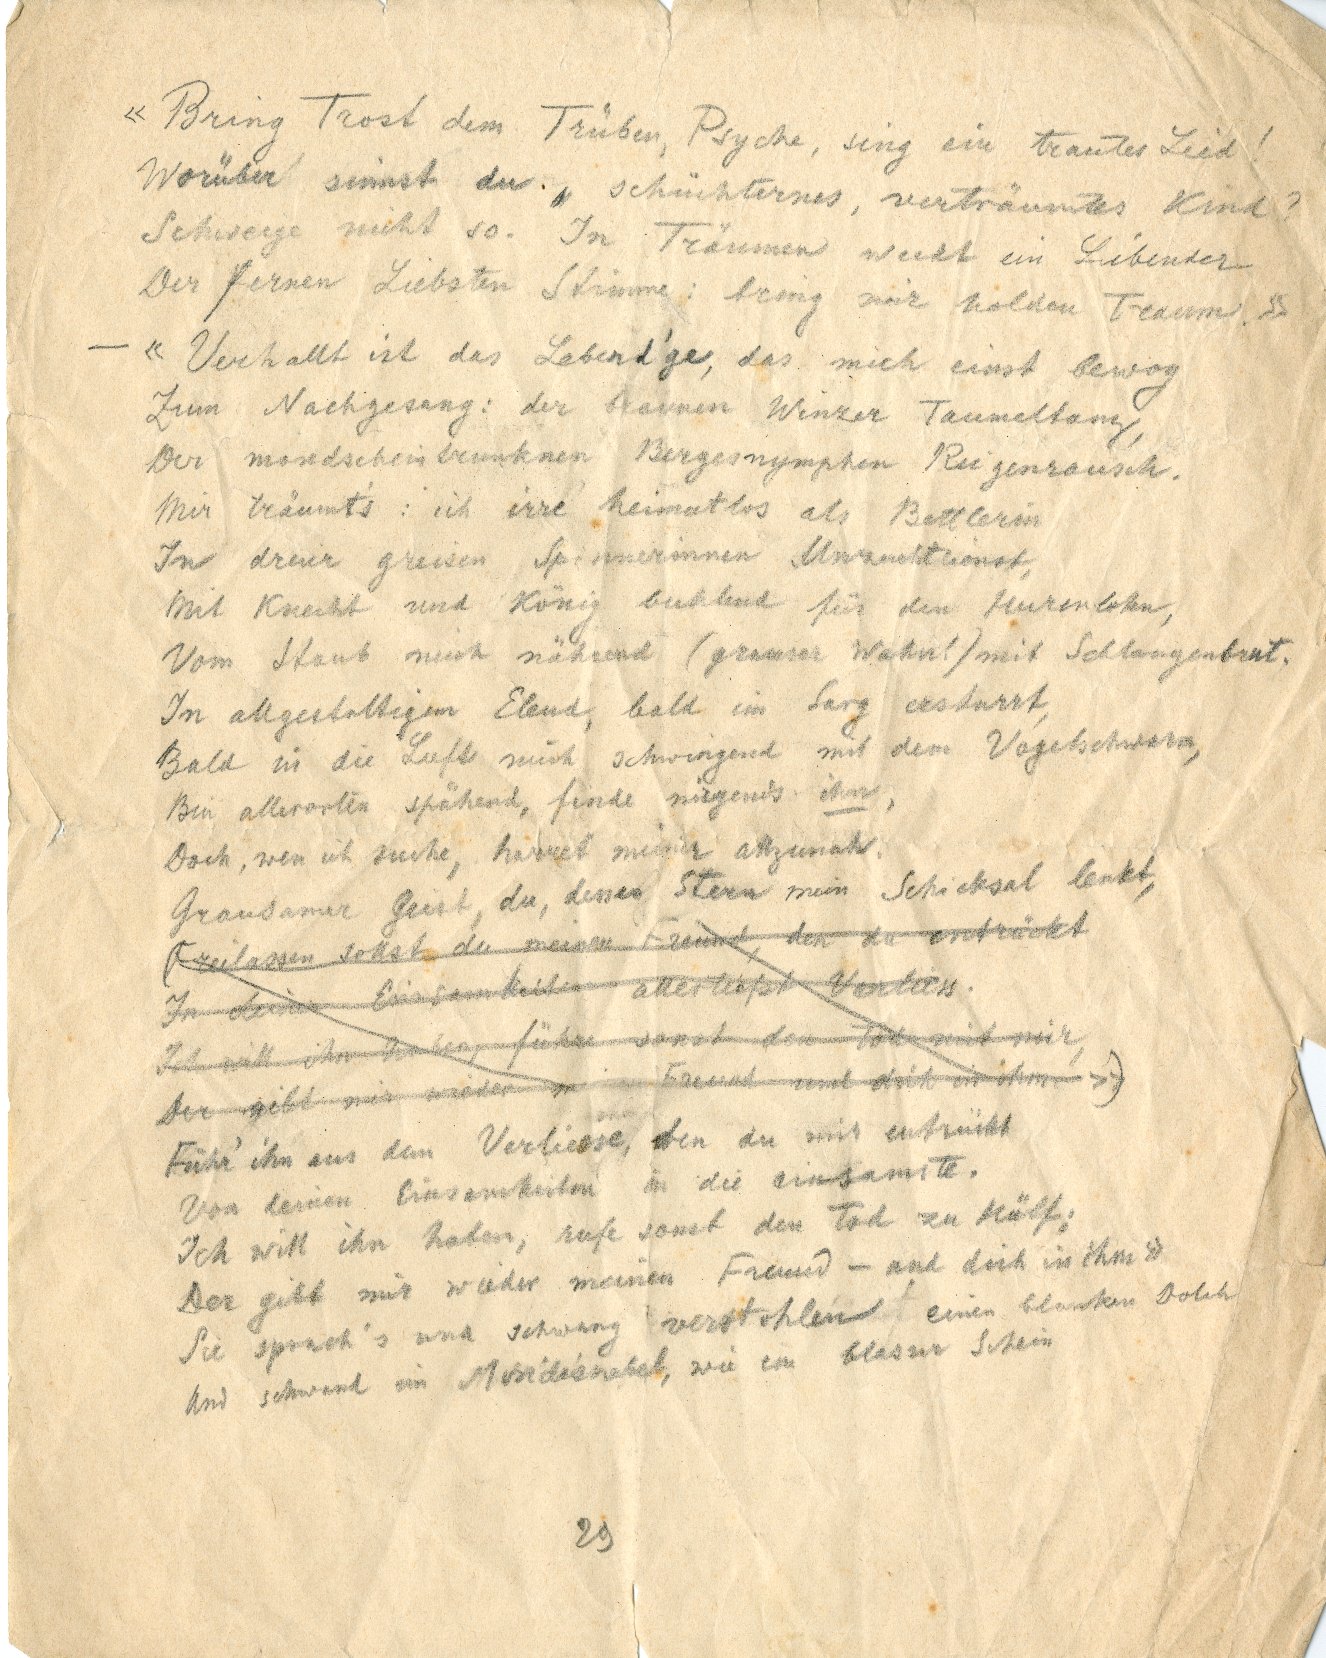 « Bring Trost dem Trüben, Psyche, sing ein trautes Lied!
Worüber sinnst du, schüchternes, verträumtes Kind?
Schweige nicht so. In Träumen weckt ein Liebender
Der fernen Liebsten Stimme: bring mir holden Traum. »
— « Verhallt ist das Lebend'ge, das mich einst bewog
Zum Nachgesang: der braunen Winzer Taumeltanz,
Der mondscheintrunknen Bergesnymphen Reigenrausch.
Mir träumt's: ich irre heimatlos als Bettlerin
In dreier greisen Spinnerinnen
Mit Knecht und König buhlend für den Hurenlohn,
Vom Staub mich nährend (grauser Wahn!) mit Schlangenbrut.
In allgestaltigem Elend, bald im Sarg erstarrt,
Bald in die Lüfte mich schwingend mit dem Vogelschwarm,
Bin allerorten spähend, finde nirgends ihn,
Doch, wen ich suche, harret meiner allzunah.
Grausamer Geist, du, dessen Stern mein Schicksal lenkt,
(Freilassen sollst du meinen Freund, den du entrückt
In deiner Einsamkeiten allertiefst Verliess.
Ich will ihn haben, führe sonst den Tod mit mir,
Der gibt mir wieder mein Freund und dich in ihm. »)
Führ' ihn aus dem Verliesse, den du mir entrückt
Von deinen Einsamkeiten in die einsamste.
Ich will ihn haben, rufe sonst den Tod zu Hülf;
Der gibt mir wieder meinen Freund — und dich in ihm »
Sie sprach's und schwang verstohlen einen blanken Dolch
Und schwand im Mondesnebel, wie ein blasser Schein
29